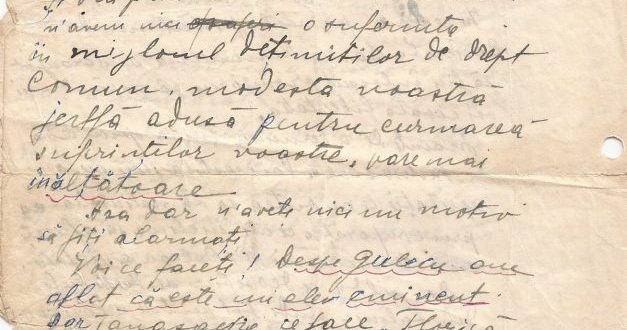 n'avem nici o suferinta
în mijlocul deținuților de drept
comun, modesta voastră
jertfă adusă pentru curmarea
suferintilor voastre, oare mai
înălțătoare
Asa dar n'aveti nici un motiv
să fiți alarmați
Voi ce faceti! Despre am
aflat că este un elev eminent.
Dar ce face